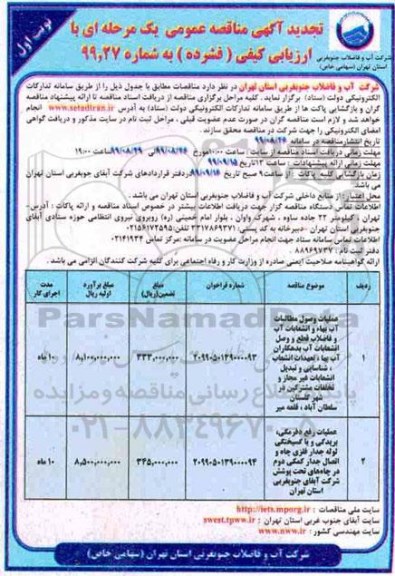 نوبت اول
تجدید آگهی مناقصه عمومی یک مرحله ای با
ارزیابی کیفی ( فشرده ) به شماره ۹۹,۲۷
شرکت آب و فاضلاب جنوبغربی
استان تهران (سهامی خاص)
شرکت آب و فاضلاب جنوبغربی استان تهران در نظر دارد مناقصات مطابق با جدول ذیل را از طریق سامانه تدارکات
الکترونیکی دولت (ستاد) برگزار نماید . کلیه مراحل برگزاری مناقصه از دریافت اسناد مناقصه تا ارائه پیشنهاد مناقصه
گران و بازگشایی پاکت ها از طریق سامانه تدارکات الکترونیکی دولت (ستاد) به آدرس www.setadiran.ir انجام
خواهد شد و لازم است مناقصه گران در صورت عدم عضویت قبلی ، مراحل ثبت نام در سایت مذکور و دریافت گواهی
امضای الکترونیکی را جهت شرکت در مناقصه محقق سازند .
تاریخ انتشار مناقصه در سامانه ۹۹/۰۸/۲۶
مهلت زمانی دریافت اسناد مناقصه از سایت : ساعت ۱۰:۰۰ مورخ ۹۹/۰۸/۲۶ الی ۹۹/۰۸/۲۹ ساعت ۱۹:۰۰
مهلت زمانی ارائه پیشنهادات : ساعت ۱۳ تاریخ ۹۹/۰۹/۱۵
زمان بازگشایی کلیه پاکات : از ساعت ۹ صبح تاریخ ۹۹/۰۹/۱۶ دفتر قراردادهای شرکت آبفای جنوبغربی استان تهران می
باشد
محل اعتبار : از منابع داخلی شرکت آب و فاضلاب جنوبغربی استان تهران می باشد .
اطلاعات تماس دستگاه مناقصه گزار جهت دریافت اطلاعات بیشتر در خصوص اسناد مناقصه و ارائه پاکات : آدرس-
تهران، کیلومتر ۲۲ جاده ساوه ، شهرک واوان ، بلوار امام خمینی (ره) روبروی نیروی انتظامی حوزه ستادی آبفای
جنوبغربی استان تهران - دبیرخانه به کد پستی: ۳۳۱۷۸۶۹۳۷۱ تلفن: ۰۲۱۵۶۱۷۲۵۹۵
اطلاعات تماس سامانه ستاد جهت انجام مراحل عضویت در سامانه: مرکز تماس ۰۲۱۴۱۹۳۴
دفتر ثبت نام : ۸۸۹۶۹۷۳۷
ارائه گواهینامه صلاحیت ایمنی صادره از وزارت کار و رفاه اجتماعی برای کلیه شرکت کنندگان الزامی می باشد .
ردیف موضوع مناقصه شماره فراخوان مبلغ تضمین(ریال) مبلغ برآورد اولیه ریال مدت اجرای کار
۱ عملیات وصول مطالبات
آب بهاء و انشعابات آب
و فاضلاب قطع و وصل
انشعابات آب بدهکاران
آب بها ، تعهدات انشعاب
، شناسایی و تبدیل
انشعابات غیر مجاز و
تخلفات مشترکین در
شهر گلستان
سلطان آباد ، قلعه میر
۲۰۹۹۰۵۰۱۳۹۰۰۰۰۹۳ ۳۳۳,۰۰۰,۰۰۰ ۸,۱۰۰,۰۰۰,۰۰۰ ۱۰ ماه
۲ عملیات رفع دفرمگی،
بریدگی و یا گسیختگی
لوله جدار فلزی چاه و
اتصال جدار کمکی دوم
در چاه‌های تحت پوشش
شرکت آبفای جنوبغربی
استان تهران
۲۰۹۹۰۵۰۱۳۹۰۰۰۰۹۴ ۳۴۵,۰۰۰,۰۰۰ ۸,۵۰۰,۰۰۰,۰۰۰ ۱۰ ماه
ParsNamadData
پایگاه اطلاع رسانی مناقصه و مزایده
۰۲۱-۸۸۳۴۹۶۷۰
سایت ملی مناقصات : http://iets.mporg.ir
سایت آبفای جنوب غربی استان تهران : swest.tpww.ir
سایت مهندسی کشور : www.nww.ir
شرکت آب و فاضلاب جنوبغربی استان تهران (سهامی خاص)